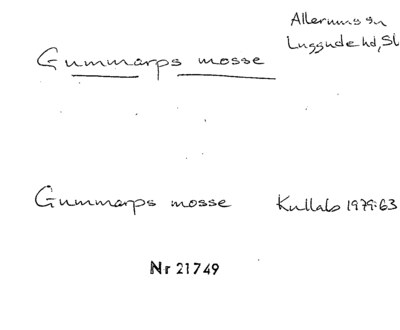 Allerums sn
Luggude hd, Sk
Gummarps mosse
Gummarps mosse Kullabo 1979:63
Nr 21749